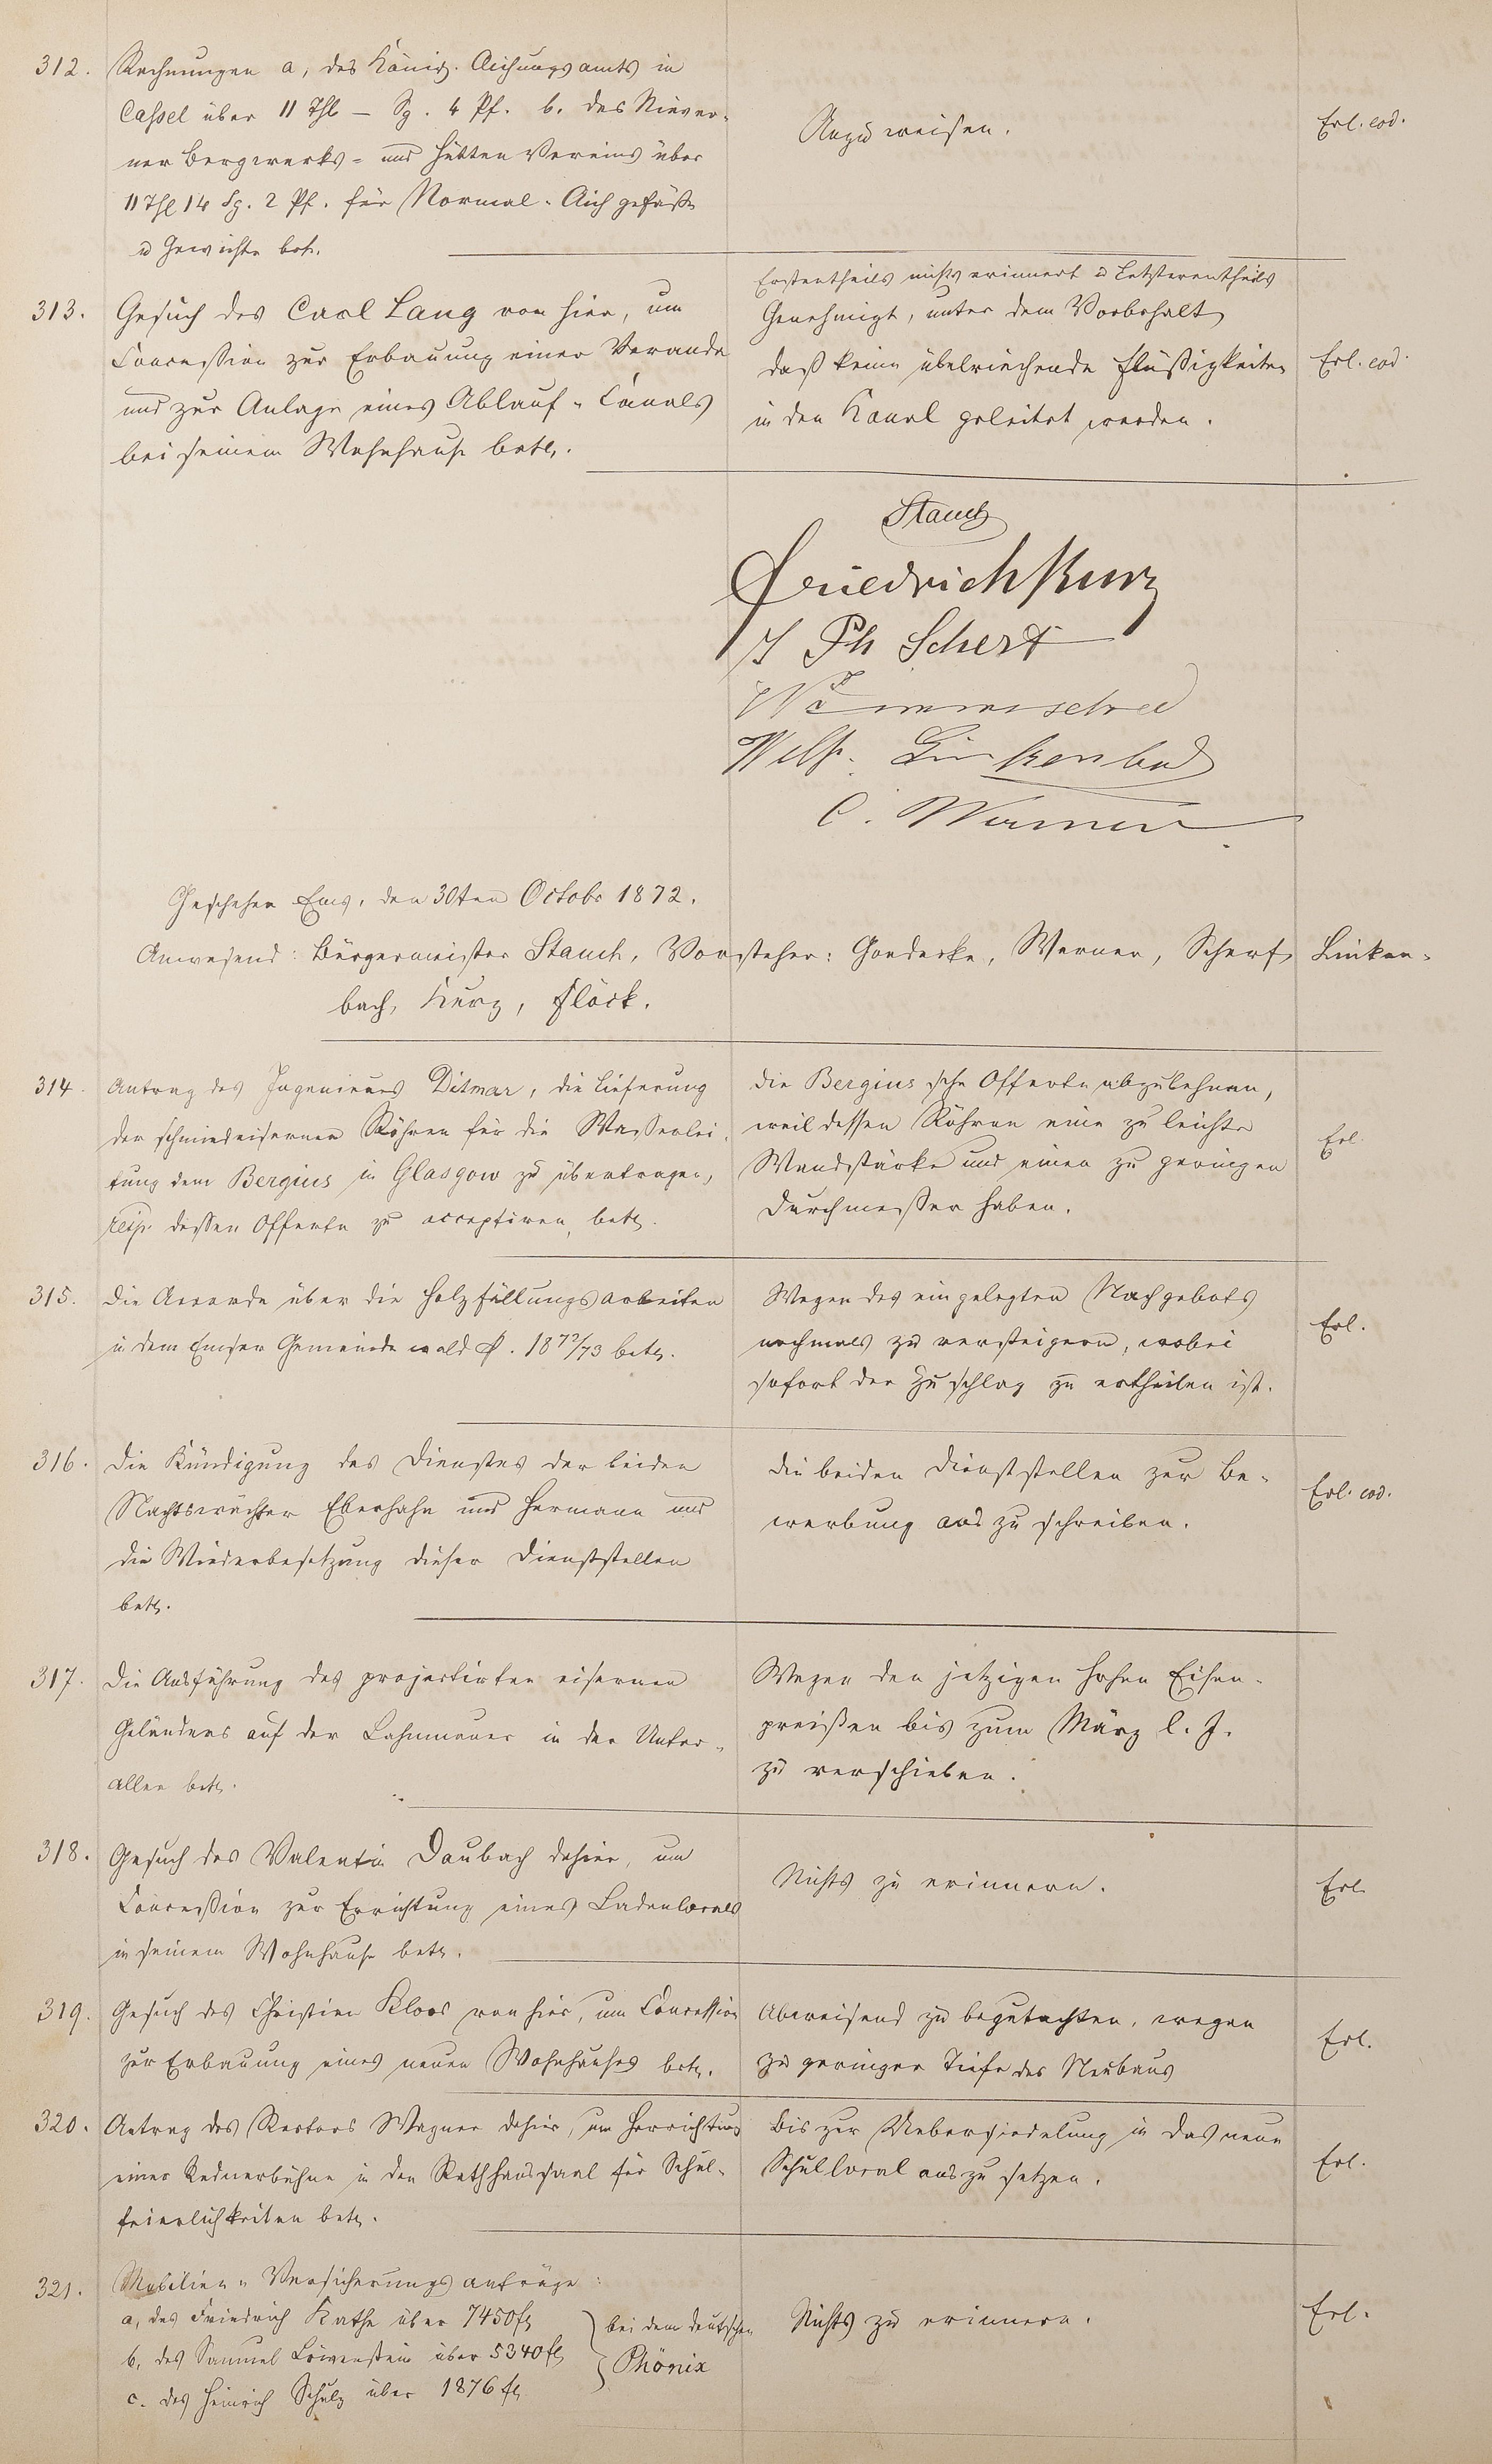 312. Rechnungen a, des Königl. Aichungsamts in
Cassel über 11 Thl — Sg. 4 Pf. b. des Niever-
ner Bergwerks- und Hütten Vereins über
11 Thl 14 Sg. 2 Pf. für Normal-Aichgefäße
u Gewichte betr.
Anzuweisen.
Erl. eod.
313. Gesuch des Carl Lang von hier, um
Concession zur Erbauung einer Veranda
und zur Anlage eines Ablauf-Canals
bei seinem Wohnhause betr.
Erstentheils nichts erinnert u Letzterentheils
Genehmigt, unter dem Vorbehalt
daß keine übelriechende Flüßigkeiten
in den Kanal geleitet werden.
Erl. eod.
Stauch
Friedrich Kurz
J Ph Scherf
Wilh. Linkenbach
C. Werner
Geschehen Ems, den 30ten Octobr 1872.
Anwesend: Bürgermeister Stauch, Vorsteher: Goedecke, Werner, Scherf, Linken-
bach, Kurz, Flöck.
314. Antrag des Ingenieurs Ditmar, die Lieferung
der schmiedeisernen Röhren für die Wasserlei-
tung dem Bergius in Glasgow zu übertragen,
resp. dessen Offerte zu acceptiren, betr.
Die Bergius'sche Offerte abzulehnen,
weil dessen Röhren eine zu leichte
Wandstärke und einen zu geringen
Durchmesser haben.
Erl.
315. Die Accorde über die Holzfällungsarbeiten
in dem Emser Gemeindewald p. 1872/73 betr.
Wegen des eingelegten Nachgebots
nochmals zu versteigern, wobei
sofort der Zuschlag zu ertheilen ist.
Erl.
316. Die Kündigung des Dienstes der beiden
Nachtswächter Eberhahn und Hermann und
die Wiederbesetzung dieser Dienststellen
betr.
Die beiden Dienststellen zur Be-
werbung auszuschreiben.
Erl. eod.
317. Die Ausführung des projectirten eisernen
Geländers auf der Lahnmauer in der Unter-
allee betr.
Wegen den jetzigen hohen Eisen-
preißen bis zum März l. J.
zu verschieben.
318. Gesuch des Valentin Daubach dahier, um
Concession zur Errichtung eines Ladenlocals
in seinem Wohnhause betr.
Nichts zu erinnern.
Erl.
319. Gesuch des Christian Kloos von hier, um Concession
zur Erbauung eines neuen Wohnhauses betr.
Abweisend zu begutachten, wegen
zu geringer Tiefe des Neubaus
Erl.
320. Antrag des Rectors Wagner dahier, um Herrichtung
einer Rednerbühne in den Rathhaussaal für Schul-
feierlichkeiten betr.
Bis zur Uebersiedelung in das neue
Schullocal auszusetzen.
Erl.
321. Mobilien-Versicherungsanträge:
a, des Friedrich Kathe über 7450 fl
b, des Samuel Löwenstein über 5340 fl
c. des Heinrich Schulz über 1876 fl
bei dem deutschen
Phönix
Nichts zu erinnern.
Erl.